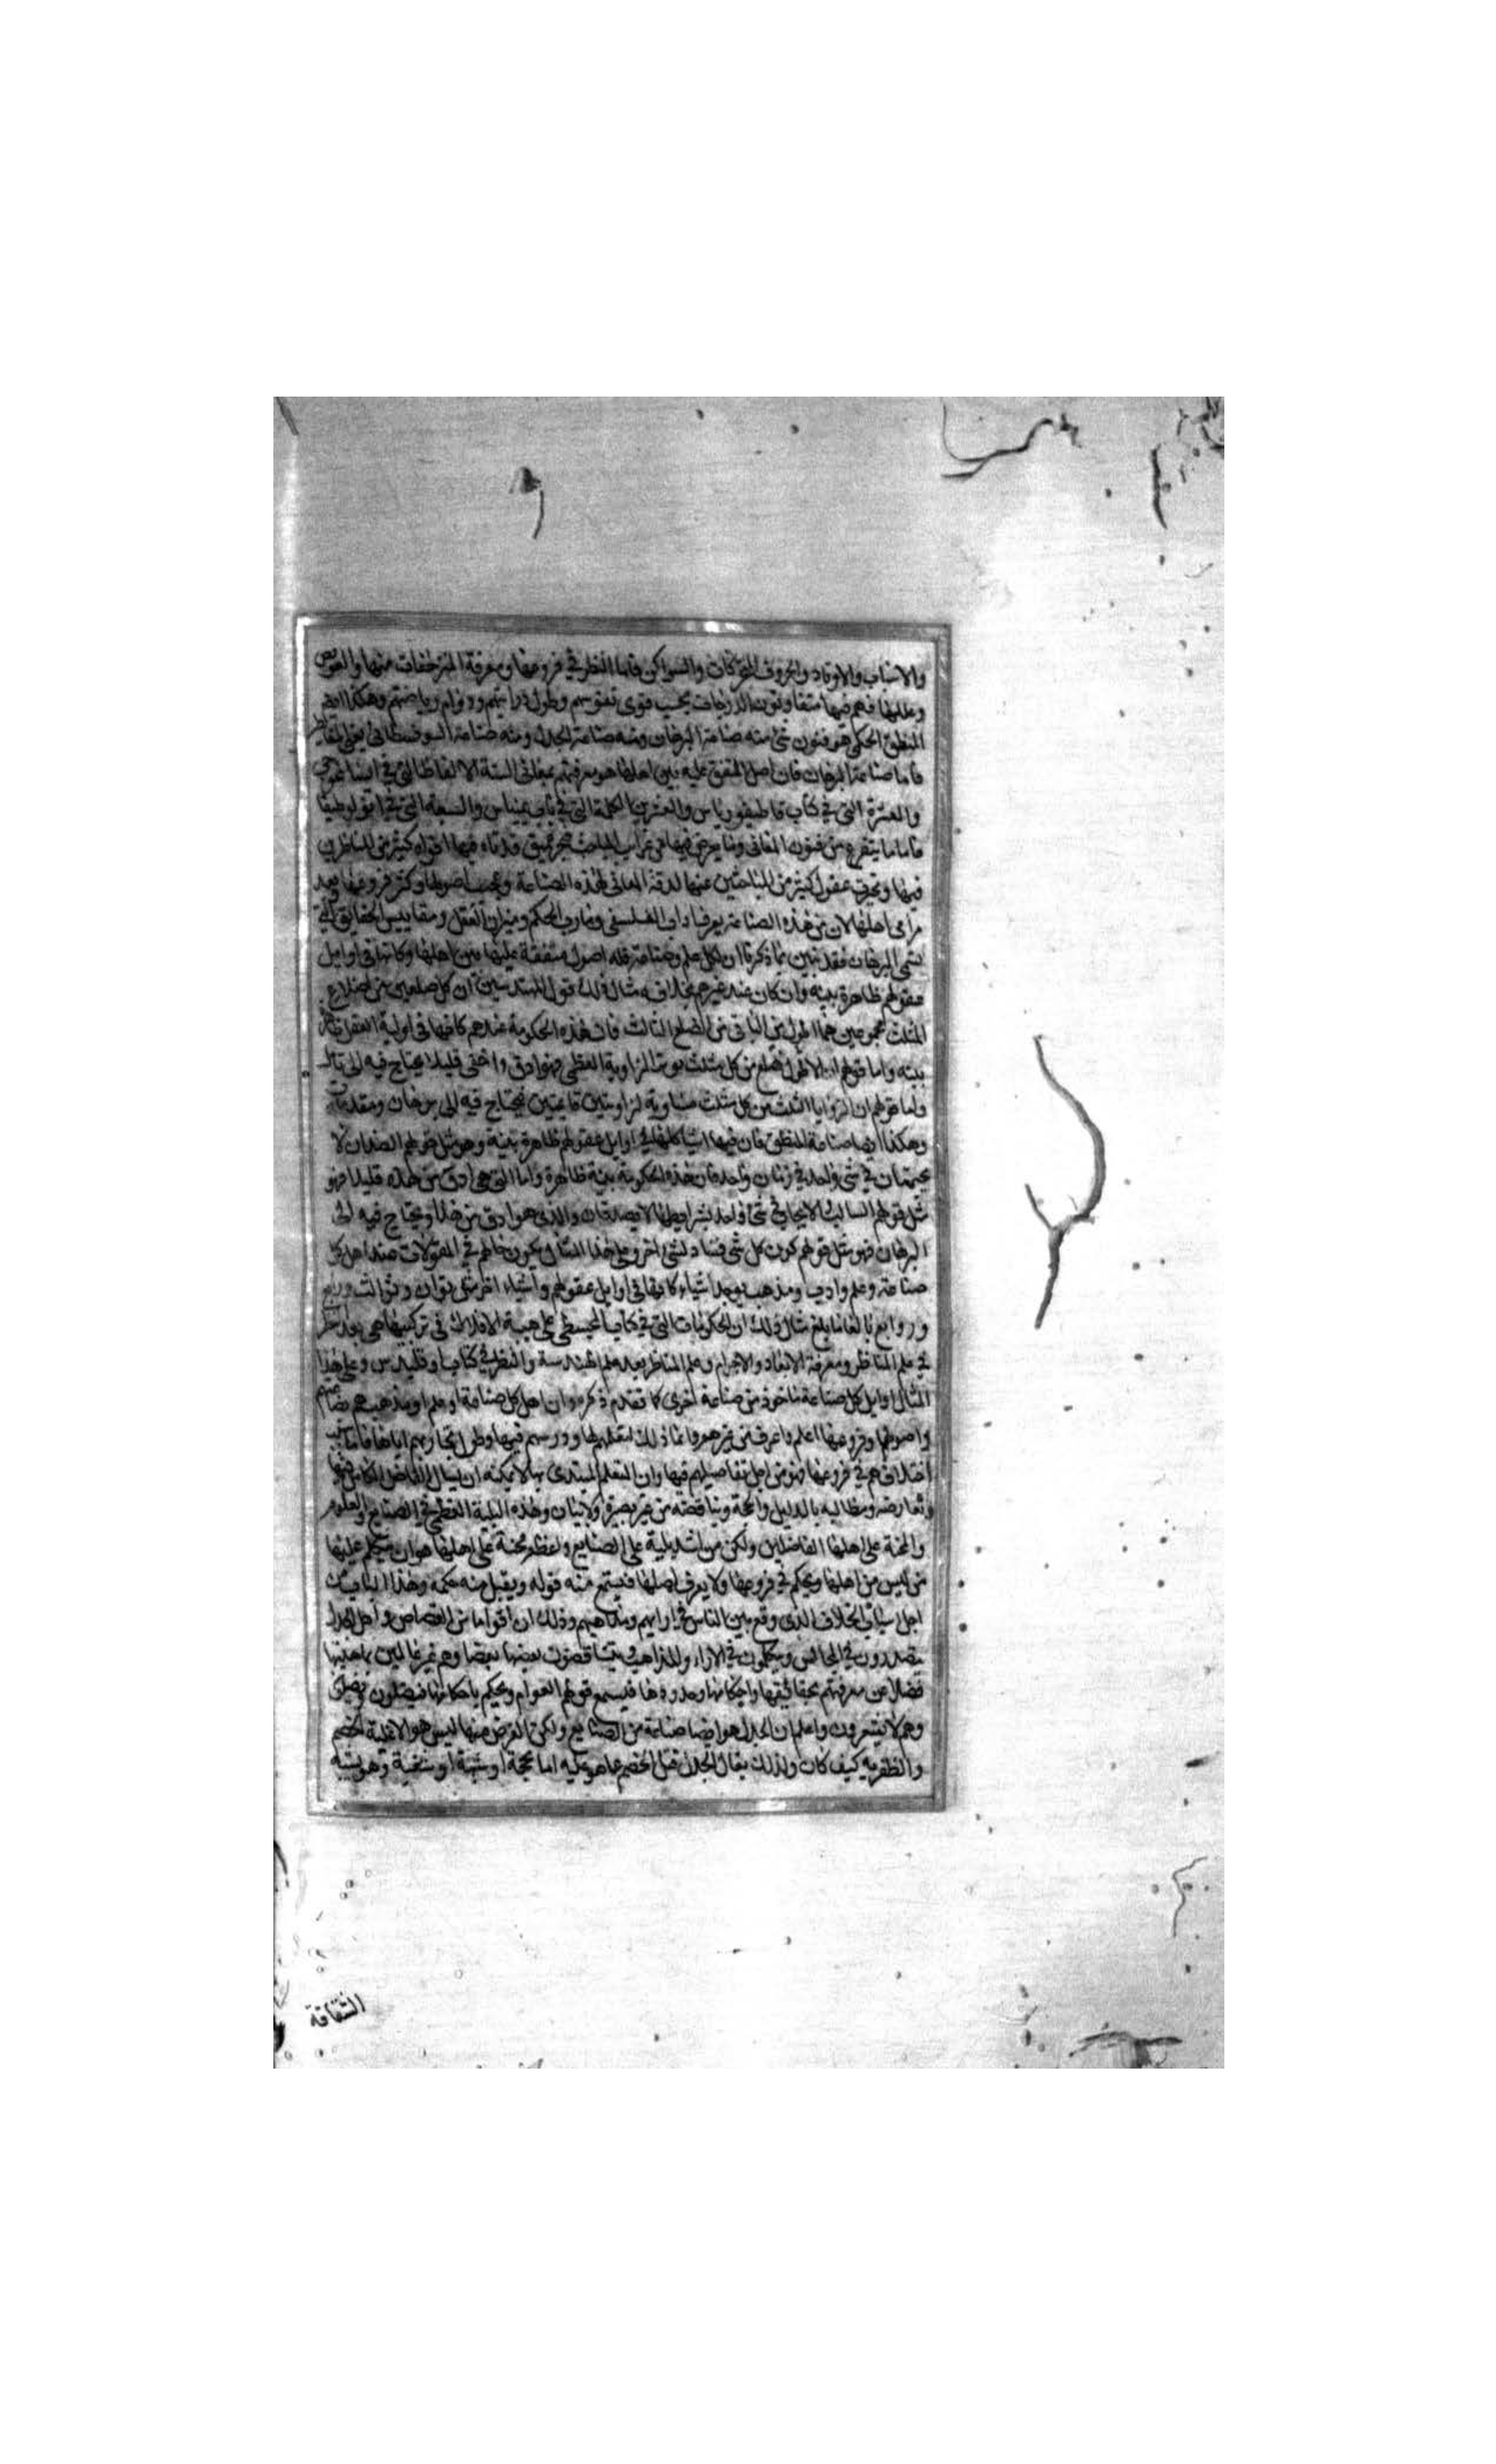 والاسباب والاوتاد والحروف المتحركات والسواكن فاما النظر في فروعها ومعرفة المنزحفات منها والعويص
وعللها فهم فيها متفاوتون الدرجات بحسب قوى نفوسهم وطول دراستهم ودوام رياضتهم وهكذا ايضا
المنطق الحكمي هو فنون شتى منه صناعة البرهان ومنه صناعة الجدل ومنه صناعة السوفسطائي يعني المغالطين
فاما صناعة البرهان فان اصل المتفق عليه بين اهلها هو معرفتهم بمعاني الستة الالفاظ التي في ايساغوجي
والعشرة التي في كتاب قاطيغورياس والعشرين الكلمة التي في باريمينياس والسبعة التي في انولوطيقا
فاما ما يتفرع من فنون المعاني وما يعرض فيها من غرايب المباحث فبحر عميق قد تاه فيها افواه كثير من الناظرين
فيها وتحيرت عقول كثير من الباحثين عنها لدقة المعاني لهذه الصناعة وعجيب اصولها وكثر فروعها وبعد
مرامي اهلها لان من هذه الصناعة يعرف اداب الفلسفي وتجارب الحكم وميزان العقل ومقاييس الحقايق التي
تسمى البرهان فقد تبين بما ذكرنا ان لكل علم وصناعة فله اصول متفقة عليها بين اهلها وكانها في اوايل
عقولهم ظاهرة بينه وان كان عند غيرهم بخلافه مثال ذلك قول المهندسين ان كل ضلعين من اضلاع
المثلث مجموعين هما اطول من الباقي من الضلع الثالث فان هذه الحكومة عندهم كانها في اولية العقل ظاهرة
بينه واما قولهم ان الاطول ضلع من كل مثلث يوتر الزاوية العظمى فهو ادق واخفى قليلا يحتاج فيه الى تأمل
واما قولهم ان الزوايا الثلث من كل مثلث مساوية لزاويتين قايمتين فيحتاج فيه الى برهان ومقدمات
وهكذا ايضا صناعة المنطق فان فيها اشيا كلها في اوايل عقولهم ظاهرة بينة وهو مثل قولهم الضدان لا
يجتمعان في شئ واحد في زمان واحد فان هذه الحكومة بينة ظاهرة واما التي هي ادق من هذه قليلا فهو
مثل قولهم السالب والايجاب في شئ واحد بشرايطها لا يصدقان والذي هو ادق من هذا ويحتاج فيه الى
البرهان فهو مثل قولهم كون كل شئ فساد لشئ اخر وعلى هذا المثال يكون حالهم في المقولات عند اهل كل
صناعة وعلم وادب ومذهب يوجد اشياء كانها في اوايل عقولهم واشياء اخر شتى ثوان وثوالث وروابع
وروابع بالغا ما بلغ مثال ذلك ان الحكومات التي في كتاب المجسطي على هيئة الافلاك في تركيبها هي بعد النظر
في علم المناظر ومعرفة الابعاد والاجرام وعلم المناظر بعد علم الهندسة والنظر في كتاب اوقليدس وعلى هذا
المثال اوايل كل صناعة ماخوذ من صناعة اخرى كما تقدم ذكره وان اهل كل صناعة او علم او مذهب هم بصناعتهم
واصولها وفروعها اعلم واعرف من غيرهم وانما ذلك لتعلمهم لها ودرسهم فيها وطول تجاربهم اياها فاما سبب
اختلافهم في فروعها فهو من اجل تفاضيلهم فيها وان المتعلم المبتدي بها لا يمكنه ان يسال الفاضل الكامل فيها
وتعارضه ومطالبه بالدليل والحجة ويناقضه من غير بصيرة ولا بيان وهذه البلية العظمى في الصنايع والعلوم
والمحنة على اهلها الفاضلين ولكن من اشد بلية على الصنايع واعظم محنة على اهلها هو ان يتكلم عليها
من ليس من اهلها ويحكم في فروعها ولا يعرف اصلها فيستمع منه قوله ويقبل منه حكمه وهذا الباب من
اجل اسباب الخلاف الذي وقع بين الناس في ارايهم ومذاهبهم وذلك ان اقواما من القصاص واهل الجدل
يتصدرون في المجالس ويتكلمون في الاراء والمذاهب ويتناقضون بعضها بعضا وهم غير عالمين بماهيتها
فضلا عن معرفتهم بحقائقها واحكامها وحدودها فيسمع قولهم العوام ويحكم باحكامها فيضلون ويضلون
وهم لا يشعرون واعلم ان الجدل هو ايضا صناعة من الصنايع ولكن الغرض منها ليس هو الا غلبة الخصم
والظفر به كيف كان ولذلك يقال الجدل فتل الخصم عما هو عليه اما بحجة او شبهة او شغبة وهو يشبه
الثقافة